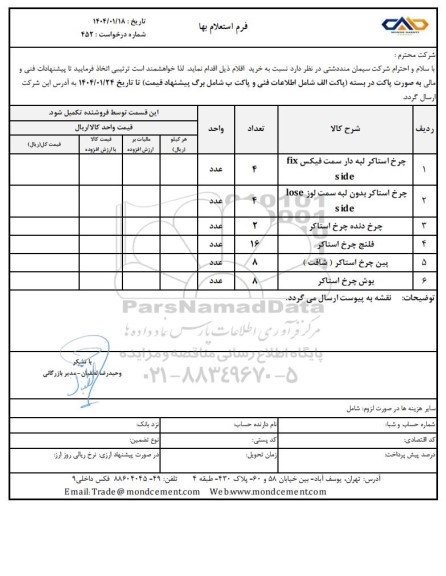 فرم استعلام بها
تاریخ : ۱۴۰۴/۰۱/۱۸
شماره درخواست : ۴۵۲
شرکت محترم :
با سلام و احترام شرکت سیمان منددشتی در نظر دارد نسبت به خرید اقلام ذیل اقدام نماید. لذا خواهشمند است ترتیبی اتخاذ فرمایید تا پیشنهادات فنی و
مالی به صورت پاکت در بسته (پاکت الف شامل اطلاعات فنی و پاکت ب شامل برگ پیشنهاد قیمت) تا تاریخ ۱۴۰۴/۰۱/۲۴ به آدرس این شرکت
ارسال گردد.
ردیف شرح کالا تعداد واحد این قسمت توسط فروشنده تکمیل شود.
قیمت واحد کالا/ریال
هر کیلو (ریال) مالیات بر ارزش افزوده قیمت کالا با ارزش افزوده قیمت کل(ریال)
۱ چرخ استاکر لبه دار سمت فیکس fix side ۴ عدد
۲ چرخ استاکر بدون لبه سمت لوز lose side ۴ عدد
۳ چرخ دنده چرخ استاکر ۲ عدد
۴ فلنچ چرخ استاکر ۱۶ عدد
۵ پین چرخ استاکر ( شافت ) ۸ عدد
۶ بوش چرخ استاکر ۸ عدد
توضیحات: نقشه به پیوست ارسال می گردد.
ParsNamadData
مرکز فرآوری اطلاعات پارس نماد داده ها
پایگاه اطلاع رسانی مناقصه و مزایده
۰۲۱-۸۸۳۴۹۶۷۰-۵
با تشکر
وحیدرضا -مدیر بازرگانی
سایر هزینه ها در صورت لزوم: شامل
شماره حساب و شبا: نام دارنده حساب: نزد بانک:
کد اقتصادی: کد پستی: نوع تضمین:
درصد پیش پرداخت: زمان تحویل: در صورت پیشنهاد ارزی، نرخ ریالی روز ارز:
آدرس: تهران، یوسف آباد- بین خیابان ۵۸ و ۶۰- پلاک ۴۳۰- طبقه ۴ تلفن: ۴۹- ۸۸۶۰۴۰۴۵ فکس داخلی۹
Email:Trade@mondcement.com Web:www.mondcement.com